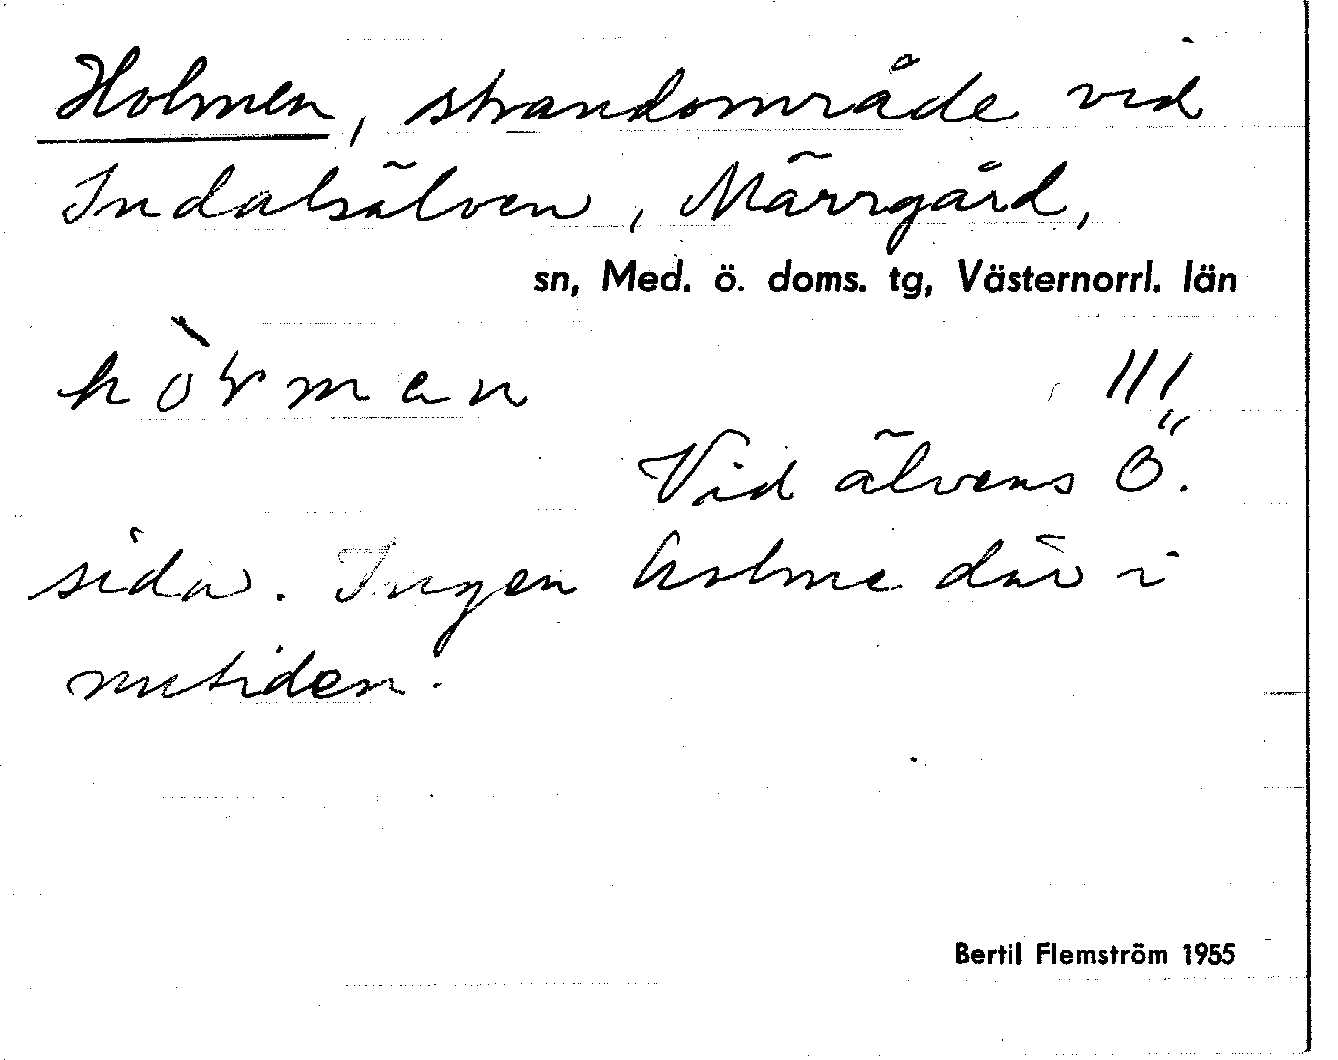 Holmen, strandområde vid
Indalsälven, Märrgård,
sn, Med. ö. doms. tg, Västernorrl. län
hòrman III
Vid älvens Ö.
sida. Ingen holme där i
nutiden.
Bertil Flemström 1955